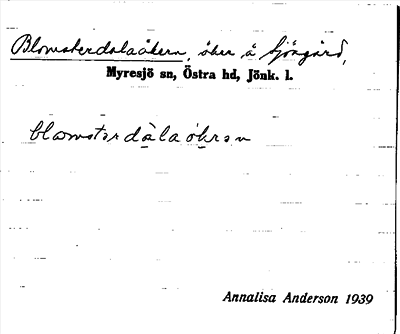 Blomsterdalaåkern, åker å Sjögård,
Myresjö sn, Östra hd, Jönk. l.
blωmstərdàlaòkrən
Annalisa Anderson 1939